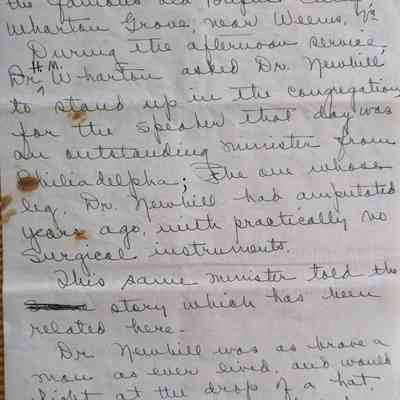 the famous old
Wharton Grove, near Weems, Va
During the afternoon service,
Dr. H. M. Wharton asked Dr. Newbill
to stand up in the congregation,
for the speaker that day was
an outstanding minister from
Philiadelpha; The one whose
leg, Dr. Newbill had amputated
years ago, with practically no
surgical instruments.
This same minister told the
story which has been
related here.
Dr. Newbill was as brave a
man as ever lived, and would
fight at the drop of a hat.